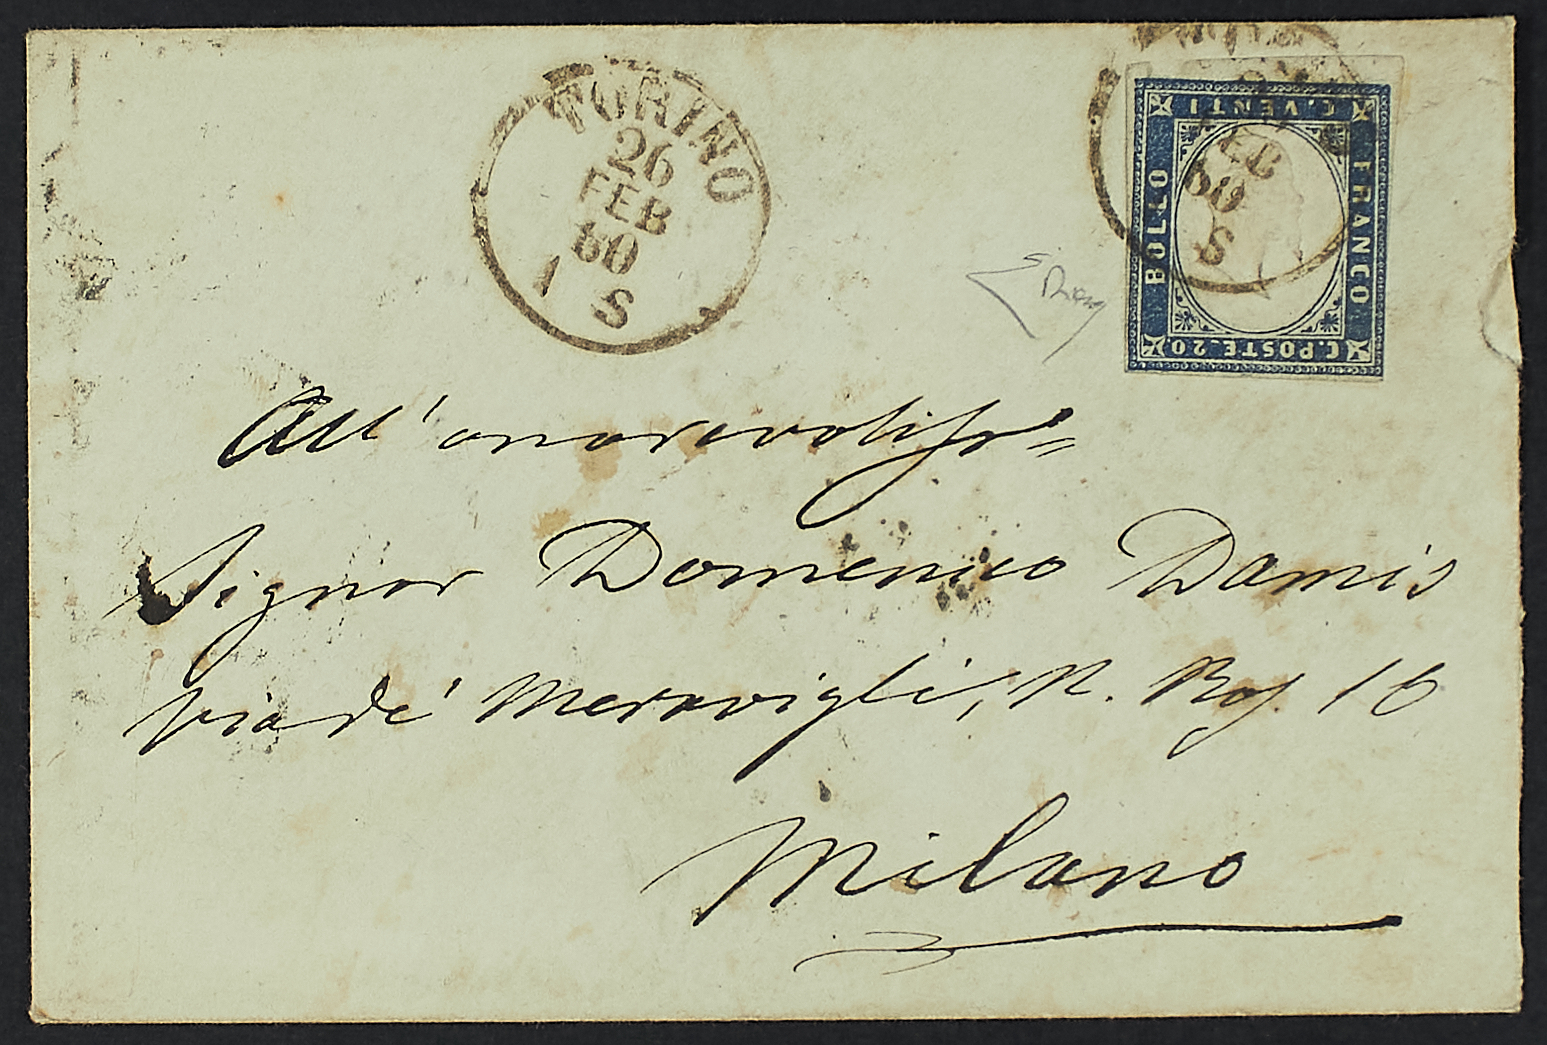 TORINO
26
FEB
60
1 S
FEB
60
S
C. VENTI
FRANCO
C. POSTE 20.
BOLLO
All' onorevolissr=
Signor Domenico Damis
via de' Meravigli, N. Ros. 16
Milano